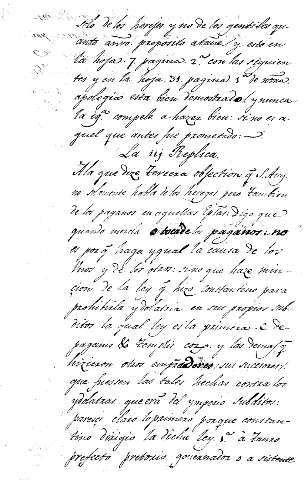 solo de los hereges y no de los gentiles qu
anto a nr̃o proposito atañe / y esto en
la hoja. 7. pagina 2ª. con las siguien
tes y en la hoja. 31. pagina 1ª. de nr̃a
apologia esta bien demostrado / y nunca
la ygᵃ. compele a hazer bien: si no es a
quel que antes fue prometido: —
La iij Replica.
A la que dize tercera objection q̃ S. Aug.
no solamente habla de los hereges pero tambien
de los paganos en aquellas epłas. digo que
quando mencio o toca de los paganos: no
es porq̃ haga ygual la causa de los
Unos y de los otros. sino que haze men
cion de la ley q̃ hizo constantino para
prohibirla ydolatria en sus propios sub
ditos la qual ley es la primera. C de
paganis & templis eorũ. y las demas q̃
hizieron otros emp̃adores, sus sucesores:
que fuessen las tales hechas contra los
ydolatras que erã del ymperio subditos:
parece claro lo primero porque constan
tino dirigio la dicha ley. 1ª. a tauro
prefecto pretorio governador o a sistente